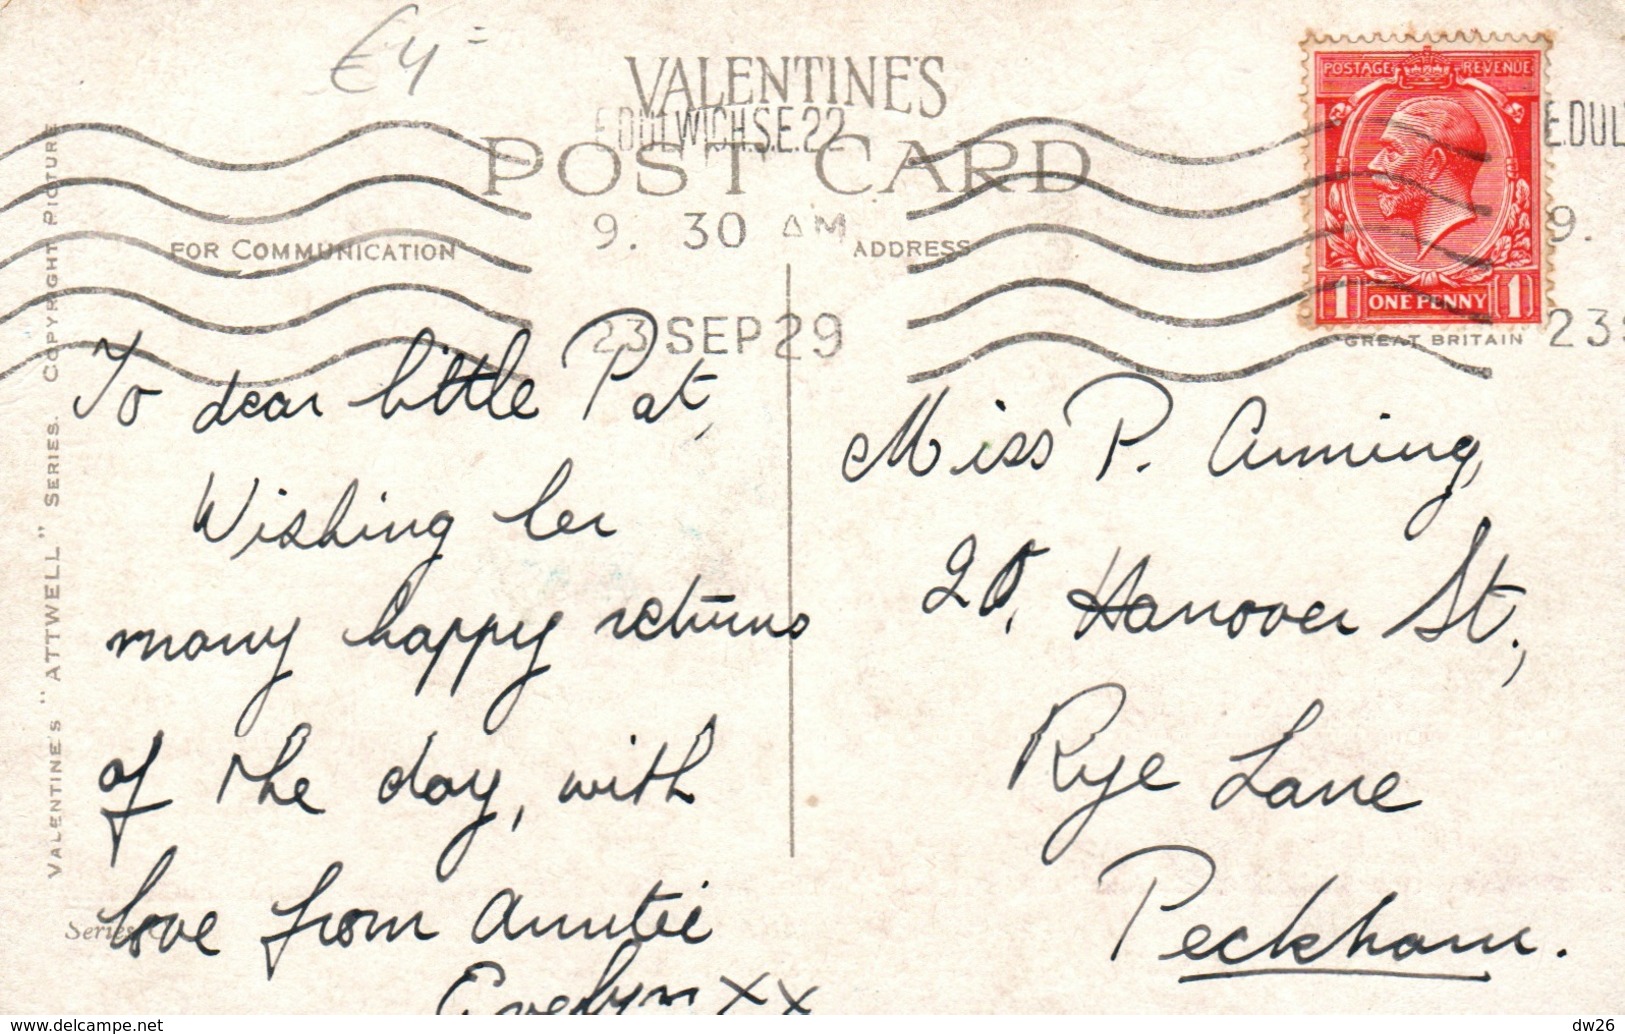 £4=
VALENTINE'S
E.DULWICH.S.E.22
POST CARD
9. 30 AM
FOR COMMUNICATION
ADDRESS
23 SEP 29
POSTAGE REVENUE
1 ONE PENNY 1
GREAT BRITAIN
E.DUL
9.
23S
VALENTINE'S "ATTWELL" SERIES. COPYRIGHT PICTURE
To dear little Pat,
Wishing her
many happy returns
of the day, with
love from Auntie
Evelyn xx
Series
Miss P. Anning,
20, Hanover St.,
Rye Lane
Peckham.
www.delcampe.net
dw26